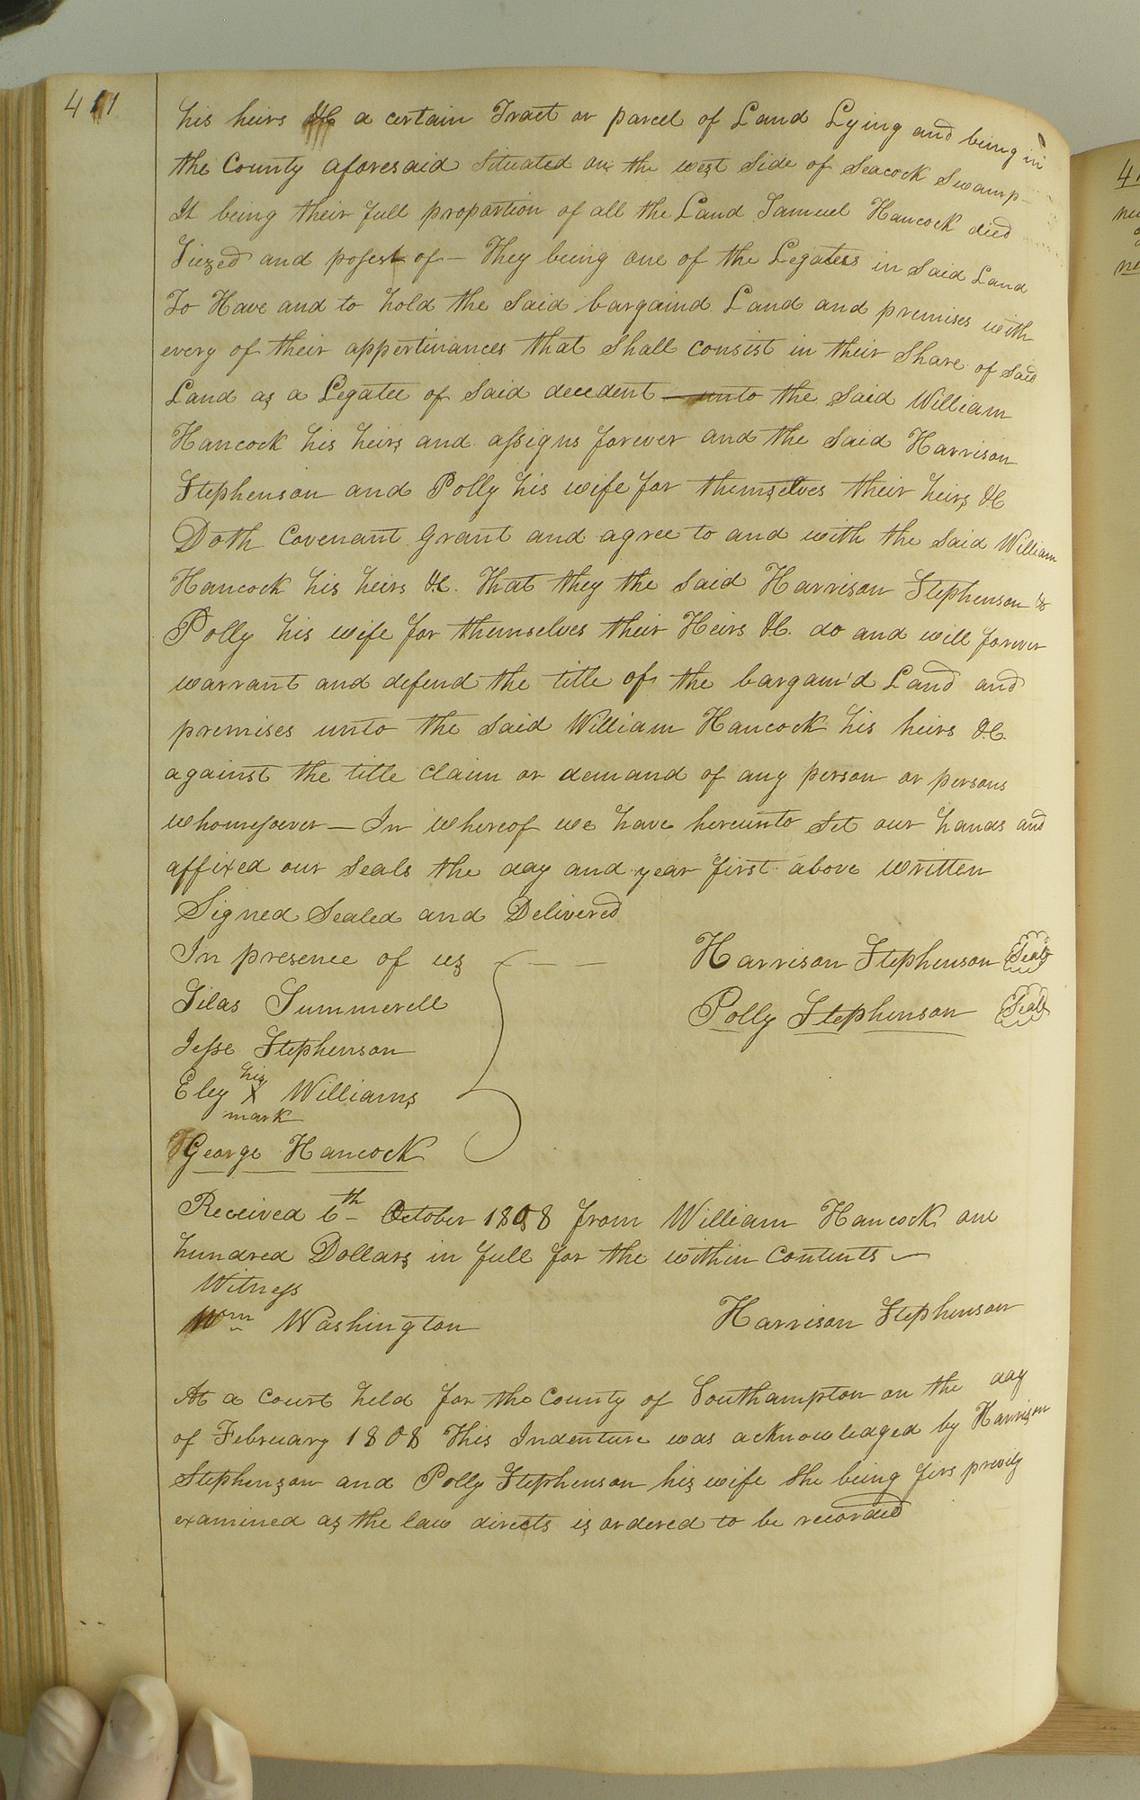 411
his heirs &C a certain Tract or parcel of Land Lying and being in
the County aforesaid Situated on the west Side of Seacock Swamp
It being their full proportion of all the Land Samuel Hancock died
Siezed and posest of — They being one of the Legatees in Said Land
To Have and to hold the Said bargaind Land and premises with
every of their appertinances that Shall consist in their Share of Said
Land as a Legatee of Said decedent — unto the Said William
Hancock his heirs and assigns forever and the Said Harrison
Stephenson and Polly his wife for themselves their heirs &C
Doth Covenant Grant and agree to and with the Said William
Hancock his heirs &C. that they the Said Harrison Stephenson &
Polly his wife for themselves their Heirs &C. do and will forever
warrant and defend the title of the bargain'd Land and
premises unto the Said William Hancock his heirs &C.
against the title Claim or demand of any person or persons
whomsoever — In whereof we have hereunto Set our hands and
affixed our Seals the day and year first above written
Signed Sealed and Delivered
In presence of us — — — Harrison Stephenson Seal
Silas Summerell Polly Stephenson Seal
Jesse Stephenson
his
Eley X Williams
mark
George Hancock
Received 6th October 1808 from William Hancock one
hundred Dollars in full for the within Contents —
Witness
Wm Washington Harrison Stephenson
At a Court held for the County of Southampton on the day
of February 1808 This Indenture was acknowledged by Harrison
Stephenson and Polly Stephenson his wife She being firs privily
examined as the law directs is ordered to be recorded